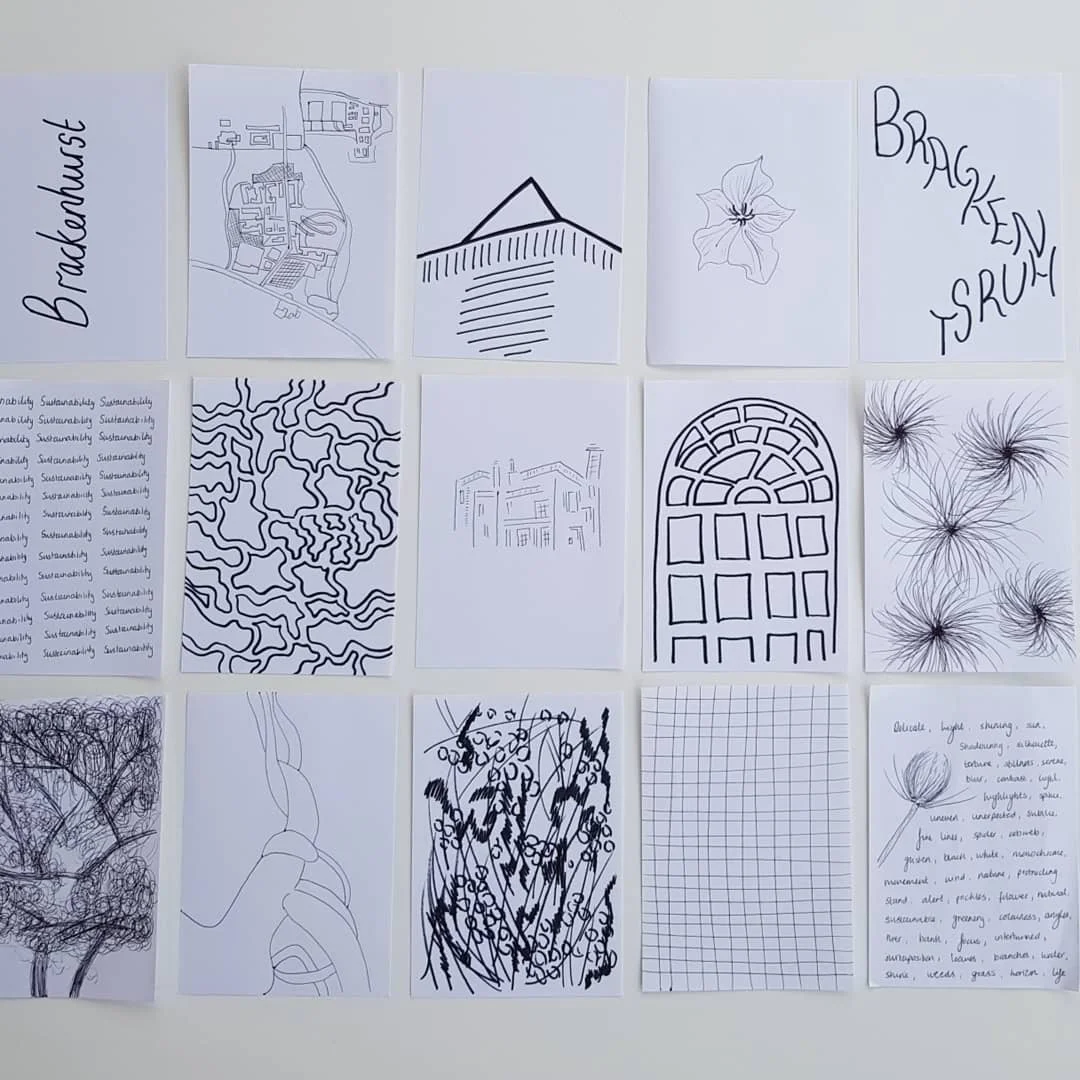 Brackenhurst
BRACKEN
TSRUH
nability Sustainability Sustainability
nability Sustainability Sustainability
nability Sustainability Sustainability
inability Sustainability Sustainability
inability Sustainability Sustainability
inability Sustainability Sustainability
nability Sustainability Sustainability
nability Sustainability Sustainability
nability Sustainability Sustainability
nability Sustainability Sustainability
nability Sustainability Sustainability
nability Sustainability Sustainability
nability Sustainability Sustainability
nability Sustainability Sustainability
Delicate, light, shining, sun,
Shadowing, silhouette,
texture, stillness, serene,
blur, contrast, light,
highlights, spike,
uneven, unexpected, subtle,
fine lines, spider, cobweb,
glisten, black, white, monochrome,
movement, wind, nature, protruding,
stand, alert, prickles, follower, natural,
sustainable, greenery, colourless, angles,
river, bank, focus, intertwined,
juxtaposition, leaves, branches, water,
shrub, weeds, grass, horizon, life